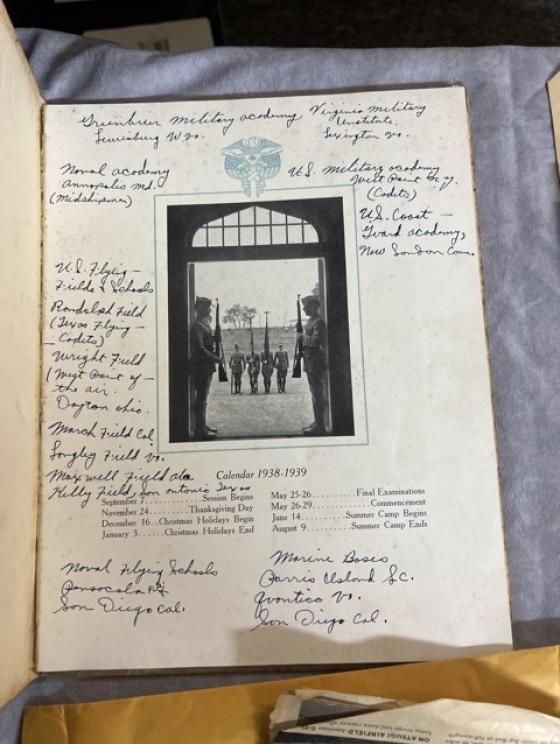 Greenbrier Military academy
Lewisburg W Va.
Virginia Military
Institute.
Lexington Va.
Naval academy
Annapolis Md.
(Midshipmen)
U.S. Military academy
West Point N.y.
(Cadets)
U.S. Coast –
Guard academy,
New London Conn.
U.S. Flying –
Fields & Schools
Randolph Field
(Texas Flying –
– Cadets)
Wright Field
(West Point of –
the air.
Dayton Ohio.
March Field Cal.
Langley Field Va.
Maxwell Field ala
Kelly Field, San Antonio Texas
Calendar 1938-1939
September 7..........Session Begins
November 24..........Thanksgiving Day
December 16...Christmas Holidays Begin
January 3......Christmas Holidays End
May 25-26..........Final Examinations
May 26-29..........Commencement
June 14..........Summer Camp Begins
August 9..........Summer Camp Ends
Naval Flying Schools
Pensacola
San Diego Cal.
Marine Bases
Parris Island S.C.
Quantico Va.
San Diego Cal.
ON ATSUGI AIRFIELD